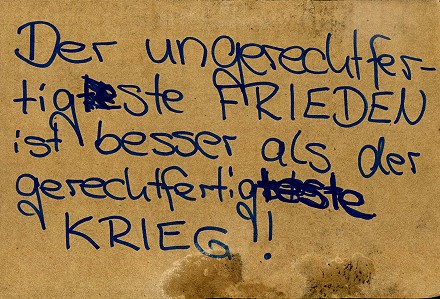 Der ungerechtfer-
tigteste FRIEDEN
ist besser als der
gerechtfertigteste
KRIEG!